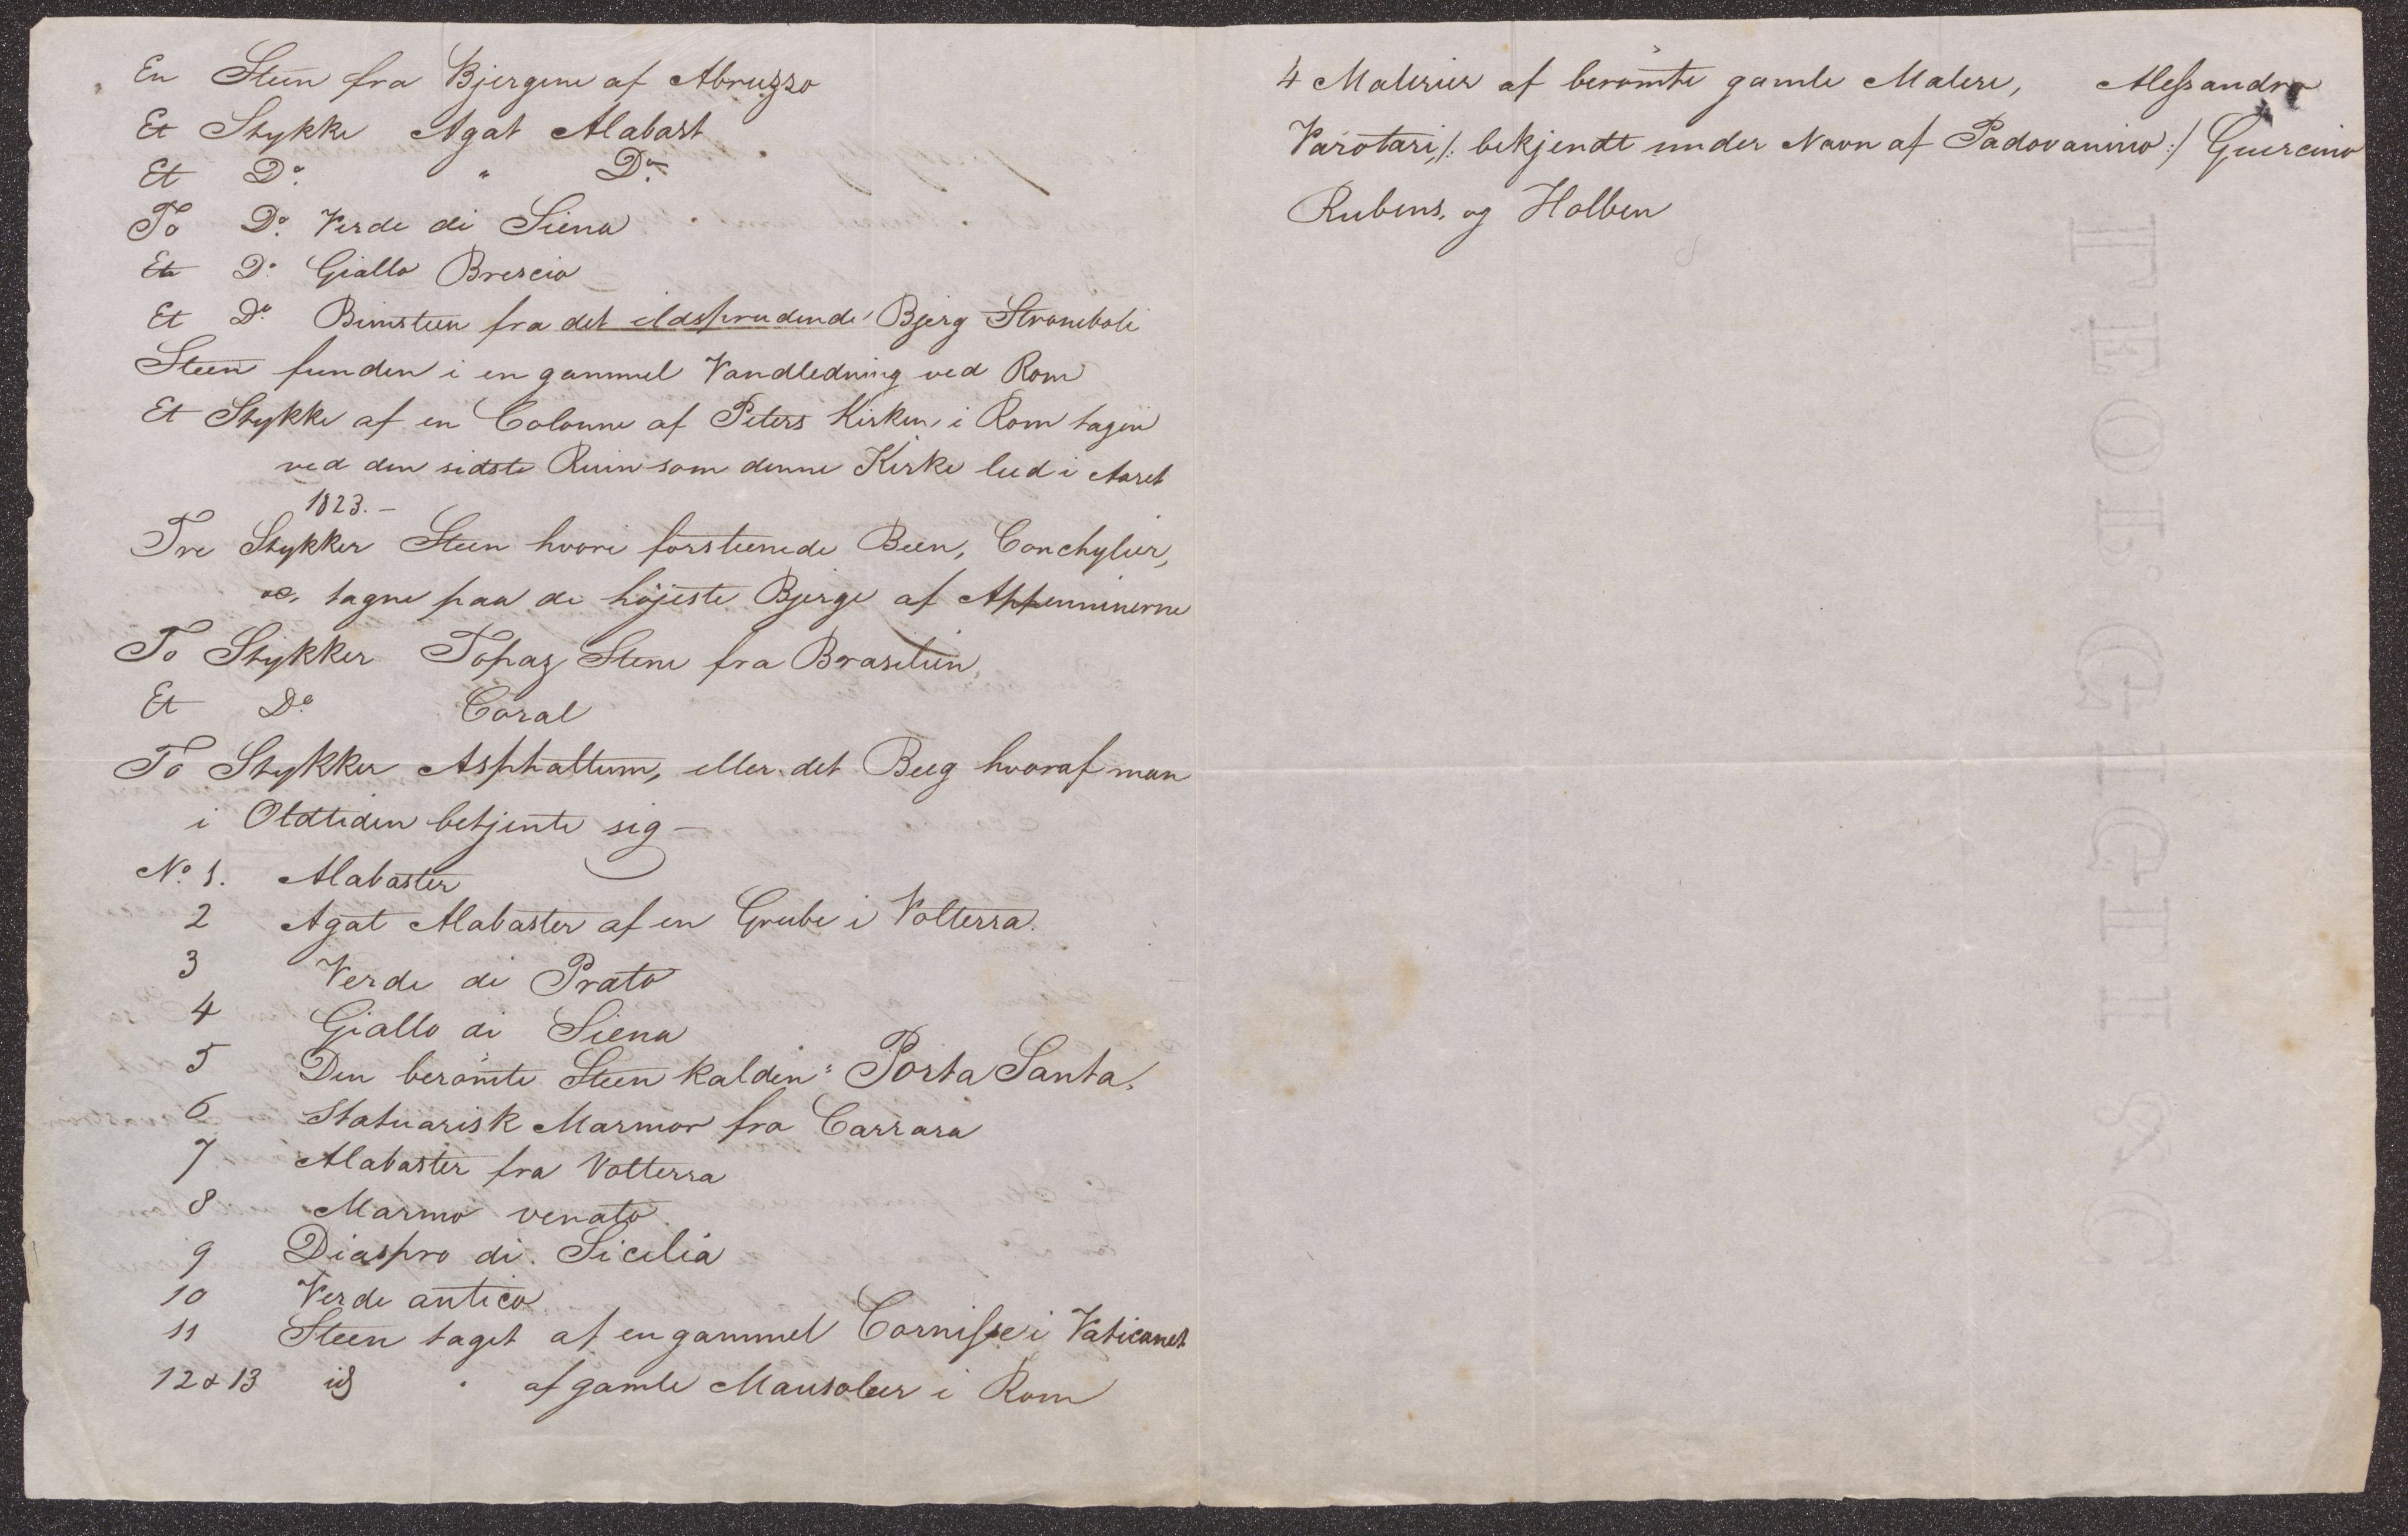 En Steen fra Bjergene af Abruzzo
Et Stykke Agat Alabast
Et Do. " Do.
To Do. Verde di Siena
Et Do. Giallo Brescia
Et Do. Bimsteen fra det ildsprudende Bjerg Stromboli
Steen funden i en gammel Vandledning ved Rom
Et Stykke af en Colonne af Peters Kirken, i Rom tagen
ved den sidste Ruin som denne Kirke leed i Aaret
1823. –
Tre Stykker Steen hvori forsteenede Been, Conchylier,
&c, tagne paa de højeste Bjerge af Appenninerne
To Stykker Topaz Stene fra Brasilien,
Et Do. Coral
To Stykker Asphaltum, eller det Beeg hvoraf man
i Oldtiden betjente sig –
No. 1. Alabaster
2 Agat Alabaster af en Grube i Volterra.
3 Verde di Prato
4 Giallo di Siena
5 Den berömte Steen kalden: Porta Santa,
6 Statuarisk Marmor fra Carrara
7 Alabaster fra Volterra
8 Marmo venato.
9 Diaspro di Sicilia
10 Verde antico
11 Steen taget af en gammel Cornisse i Vaticanet
12 & 13 id " af gamle Mausoleer i Rom
4 Malerier af berömte gamle Malere, Alessandro
Varotari, /: bekjendt under Navn af Padovanino :/ Guercino
Rubens, og Holben